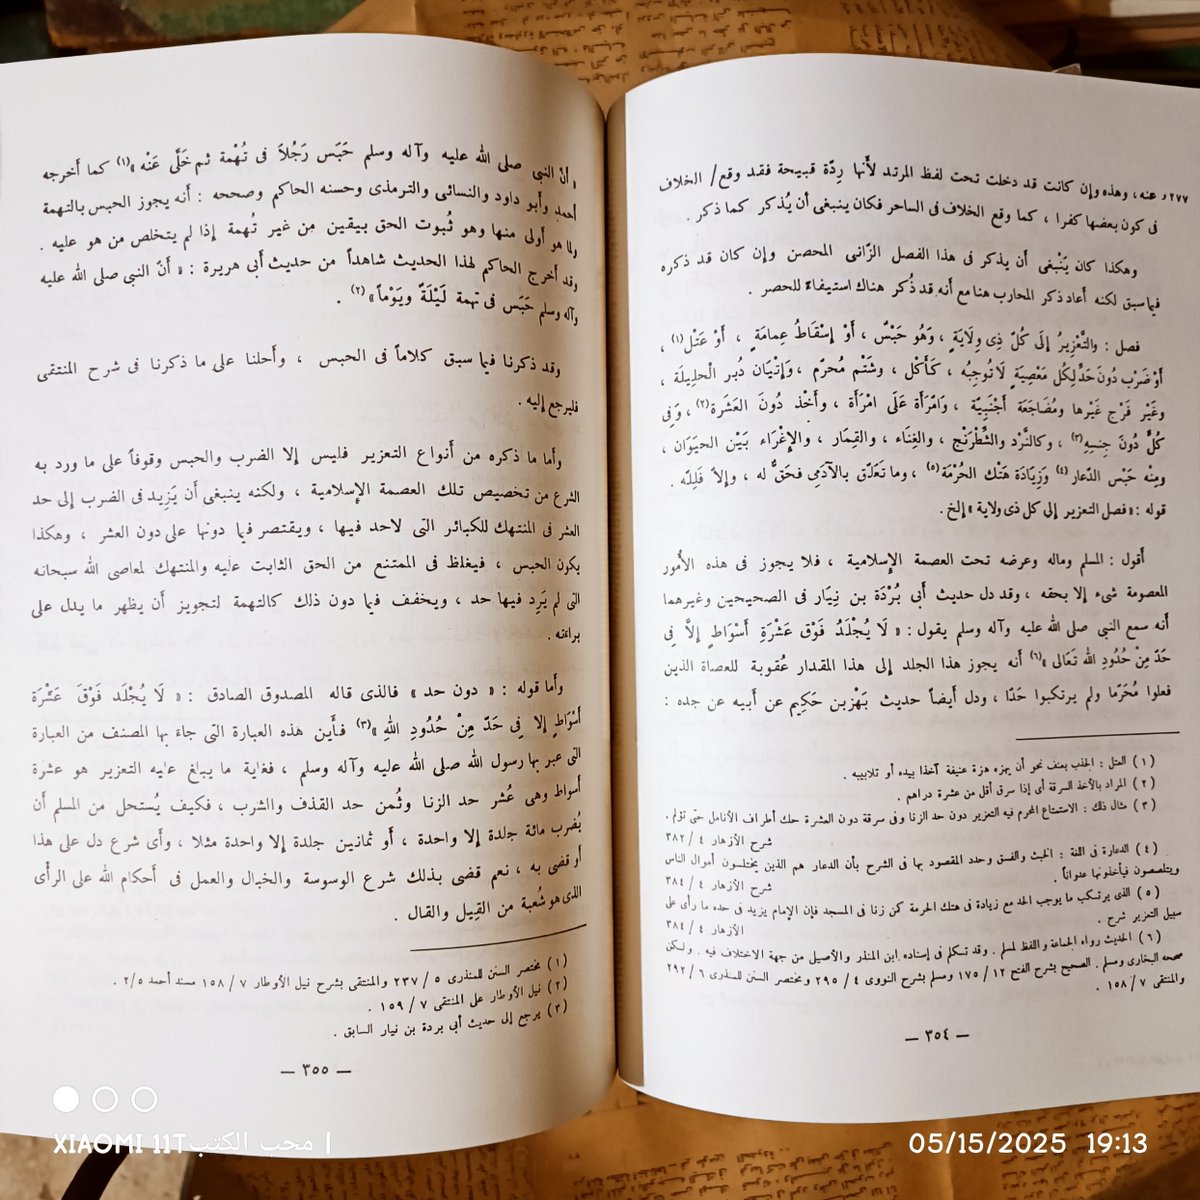 ٢٧٧ر عنه ، وهذه وإن كانت قد دخلت تحت لفظ المرتد لأنها رِدّة قبيحة فقد وقع/ الخلاف
فى كون بعضها كفرا ، كما وقع الخلاف فى الساحر فكان ينبغى أن يُذكر كما ذكر .
وهكذا كان يَنْبغى أن يذكر فى هذا الفصل الزّانى المحصن وإن كان قد ذكره
فيما سبق لكنه أعاد ذكر المحارب هنا مع أنه قد ذُكر هناك استيفاءً للحصر .
فصل : والتَّعْزِيرُ إلَى كُلّ ذِى وِلَايَةٍ ، وَهُو حَبْسٌ ، أَوْ إسْقَاطُ عِمامَةٍ ، أوْ عَتْل(١) ،
أوْ ضَرْب دُونَ حَدّ لِكُل مَعْصِيَةٍ لَا تُوجِبُه ، كَأَكْل ، وشَتْم مُحرّم ، وَإتْيَان دُبر الْحلِيلَة ،
وغَيْر فَرْج غَيْرها ومُضَاجَعَة أجْنَبِيّة ، وَامْرَأة عَلَى امْرَأة ، وأخْذ دُونَ العَشَرة(٢) ، وَفِى
كُلٍّ دُونَ جِنسِهِ(٣) ، وكالنَّرْد والشِّطْرَنْج ، والغِنَاء ، والقِمَار ، والإغْرَاء بَيْن الحَيَوَان ،
ومِنْه حَبْس الدّعار(٤) وَزِيَادَة هَتْك الحُرْمَة(٥) ، وما تَعَلّق بالآدَمِى فحَقٌّ له ، وإلاّ فَلِلّه .
قوله : « فصل التعزير إلى كل ذى ولاية » إلخ .
أقول : المسلم وماله وعرضه تحت العصمة الإسلامية ، فلا يجوز فى هذه الأمور
المعصومة شىء إلا بحقه ، وقد دل حديث أبى بُرْدَة بن نِيَار فى الصحيحين وغيرهما
أنه سمع النبى صلى الله عليه وآله وسلم يقول : « لَا يُجْلَدُ فَوْق عَشْرَةِ أسْوَاطٍ إلاَّ فِي
حَدّ مِنْ حُدُودِ الله تَعَالى »(٦) أنه يجوز هذا الجلد إلى هذا المقدار عُقوبة للعصاة الذين
فعلوا مُحَرّما ولم يرتكبوا حَدًا ، ودل أيضاً حديث بَهْز بن حَكِيم عن أبيه عن جده :
(١) العتل : الجذب بعنف نحو أن يهزه هزة عنيفة آخذا بيده أو تلابيبه .
(٢) المراد بالأخذ السرقة أى إذا سرق أقل من عشرة دراهم .
(٣) مثال ذلك : الاستمتاع المحرم فيه التعزير دون حد الزنا وفى سرقة دون العشرة حك أطراف الأنامل حتى تؤلم .
شرح الأزهار ٤ / ٣٨٢
(٤) الدعارة فى اللغة : الخبث والفسق وحدد المقصود بها فى الشرح بأن الدعار هم الذين يختلسون أموال الناس
ويتلصصون فيأخذونها عدواناً .
شرح الأزهار ٤ / ٣٨٤
(٥) الذى يرتكب ما يوجب الحد مع زيادة فى هتك الحرمة كمن زنا فى المسجد فإن الإمام يزيد فى حده ما رأى على
سبيل التعزير شرح .
الأزهار ٤ / ٣٨٤
(٦) الحديث رواه الجماعة واللفظ لمسلم . وقد تسكلم فى إسناده ابن المنذر والأصيلى من جهة الاختلاف فيه . ولسكن
صححه البخارى ومسلم . الصحيح بشرح الفتح ١٢ / ١٧٥ ومسلم بشرح النووى ٤ / ٢٩٥ ومختصر السنن للمنذرى ٦ / ٢٩٢
والمنتقى ٧ / ١٥٨ .
— ٣٥٤ —
« أنّ النبى صلى الله عليه وآله وسلم حَبَس رَجُلاً فى تُهْمة ثم خَلَّى عَنْه »(١) كما أخرجه
أحمد وأبو داود والنسائى والترمذى وحسنه الحاكم وصححه : أنه يجوز الحبس بالتهمة
ولما هو أولى منها وهو ثُبوت الحق بيقين من غير تُهمة إذا لم يتخلص من هو عليه .
وقد أخرج الحاكم لهذا الحديث شاهداً من حديث أبى هريرة : « أنّ النبى صلى الله عليه
وآله وسلم حَبَس فى تهمة لَيْلَةً ويَوْماً »(٢) .
وقد ذكرنا فيما سبق كلاماً فى الحبس ، وأحلنا على ما ذكرنا فى شرح المنتقى
فليرجع إليه .
وأما ما ذكره من أنواع التعزير فليس إلا الضرب والحبس وقوفاً على ما ورد به
الشرع من تخصيص تلك العصمة الإسلامية ، ولكنه ينبغى أن يَزِيد فى الضرب إلى حد
العشر فى المنتهك للكبائر التى لاحد فيها ، ويقتصر فيما دونها على دون العشر ، وهكذا
يكون الحبس ، فيغلظ فى الممتنع من الحق الثابت عليه والمنتهك لمعاصى الله سبحانه
التى لم يَرِد فيها حد ، ويخفف فيما دون ذلك كالتهمة لتجويز أن يظهر ما يدل على
براءته .
وأما قوله : « دون حد » فالذى قاله المصدوق الصادق : « لَا يُجْلَد فَوْقَ عَشْرَة
أسْوَاطٍ إلا فِى حَدّ مِنْ حُدُودِ اللهِ »(٣) فأين هذه العبارة التى جاءَ بها المصنف من العبارة
التى عبر بها رسول الله صلى الله عليه وآله وسلم ، فغاية ما يبلغ عليه التعزير هو عشرة
أسواط وهى عُشر حد الزنا وثُمن حد القذف والشرب ، فكيف يُستحل من المسلم أن
يُضرب مائة جلدة إلا واحدة ، أو ثمانين جلدة إلا واحدة مثلا ، وأى شرع دل على هذا
أو قضى به ، نعم قضى بذلك شرع الوسوسة والخيال والعمل فى أحكام الله على الرأى
الذى هو شُعبة من القِيل والقال .
(١) مختصر السنن للمنذرى ٥ / ٢٣٧ والمنتقى بشرح نيل الأوطار ٧ / ١٥٨ مسند أحمد ٢/٥ .
(٢) نيل الأوطار على المنتقى ٧ / ١٥٩ .
(٣) يرجع إلى حديث أبى بردة بن نيار السابق .
— ٣٥٥ —
XIAOMI 11T محب الكتب |
05/15/2025 19:13